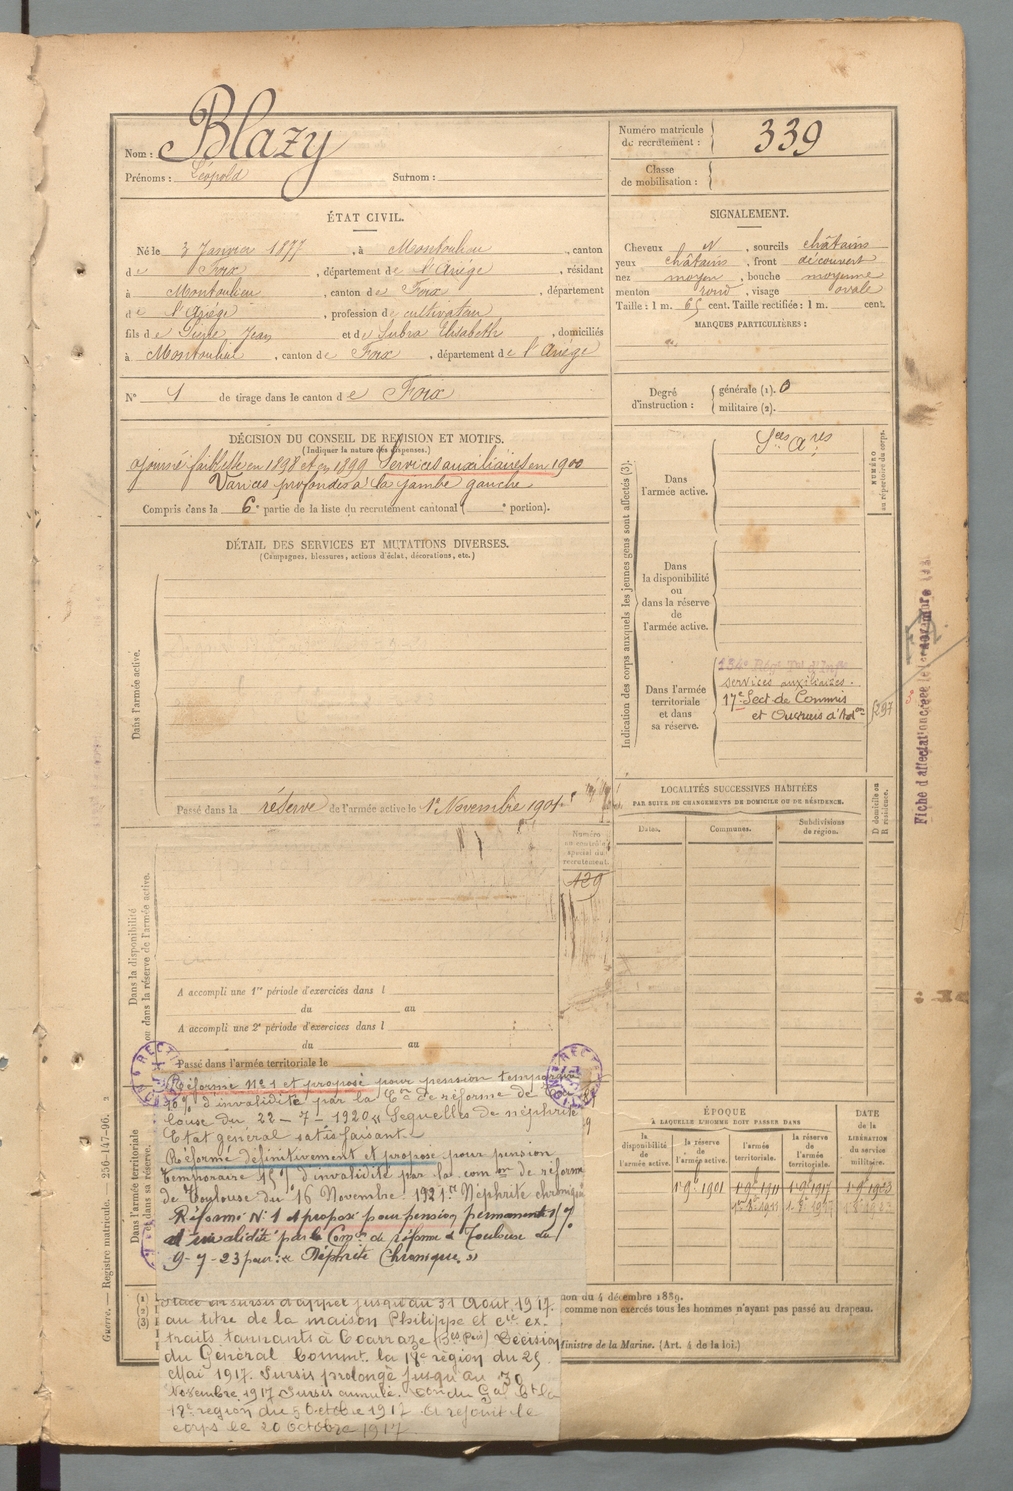 Nom : Blazy
Prénoms : Léopold Surnom :
Numéro matricule de recrutement : 339
Classe de mobilisation :
ÉTAT CIVIL.
Né le 3 Janvier 1877, à Montoulieu, canton
de Foix, département de l'Ariège, résidant
à Montoulieu, canton de Foix, département
de l'Ariège, profession de cultivateur
fils de Pierre Jean et de Subra Elisabeth, domiciliés
à Montoulieu, canton de Foix, département de l'Ariège
N° 1 de tirage dans le canton de Foix
SIGNALEMENT.
Cheveux N, sourcils châtains
yeux châtains, front découvert
nez moyen, bouche moyenne
menton rond, visage ovale
Taille : 1 m. 65 cent. Taille rectifiée : 1 m. cent.
MARQUES PARTICULIÈRES :
Degré d'instruction : générale (1). 0
militaire (2).
DÉCISION DU CONSEIL DE REVISION ET MOTIFS.
(Indiquer la nature des dispenses.)
Ajourné faiblesse en 1898 et en 1899 Services auxiliaires en 1900
Varices profondes à la jambe gauche
Compris dans la 6e partie de la liste du recrutement cantonal ( e portion).
DÉTAIL DES SERVICES ET MUTATIONS DIVERSES.
(Campagnes, blessures, actions d'éclat, décorations, etc.)
Dans l'armée active.
Passé dans la réserve de l'armée active le 1er Novembre 1901
Indication des corps auxquels les jeunes gens sont affectés (3).
Dans l'armée active.
Sces Aires
NUMÉRO au répertoire du corps.
Dans la disponibilité ou dans la réserve de l'armée active.
Dans l'armée territoriale et dans sa réserve.
services auxiliaires.
17e Sect de Commis
et Ouvriers d'Adon
Fiche d'affectation créée le
LOCALITÉS SUCCESSIVES HABITÉES
PAR SUITE DE CHANGEMENTS DE DOMICILE OU DE RÉSIDENCE.
Dates. Communes. Subdivisions de région.
D domicile ou R résidence.
Dans la disponibilité ou dans la réserve de l'armée active.
Numéro au contrôle spécial du recrutement.
429
A accompli une 1re période d'exercices dans l
du au
A accompli une 2e période d'exercices dans l
du au
Passé dans l'armée territoriale le
Dans l'armée territoriale et dans sa réserve.
Réforme N° 1 et proposé pour pension temporaire
10% d'invalidité par la Con de réforme de Tou
louse du 22-7-1920 « Sequelles de néphrite
Etat général satisfaisant.
Réformé définitivement et proposé pour pension
temporaire 15% d'invalidité par la comon de réforme
de Toulouse du 16 Novembre 1921. Néphrite chronique
Réformé N° 1 et proposé pour pension permanente
d'invalidité par la Comon de réforme de Toulouse du
9-7-23 pour : « Néphrite Chronique »
ÉPOQUE
À LAQUELLE L'HOMME DOIT PASSER DANS
la disponibilité de l'armée active.
la réserve de l'armée active.
l'armée territoriale.
la réserve de l'armée territoriale.
DATE de la LIBÉRATION du service militaire.
non du 4 décembre 1889.
comme non exercés tous les hommes n'ayant pas passé au drapeau.
Ministre de la Marine. (Art. 4 de la loi.)
en sursis d'appel jusqu'au 31 Août 1917.
au titre de la maison Philippe et cie ex-
traits tannants à Coarraze (Bses Pées) Décision
du Général Commt. la 18e région du 25
Mai 1917. Sursis prolongé jusqu'au 30
Novembre 1917 Sursis annulé. don du Gal Ct la
18e région du 5 Octobre 1917 A rejoint le
corps le 20 Octobre 1917
Guerre. — Registre matricule. — 256-147-96. 2